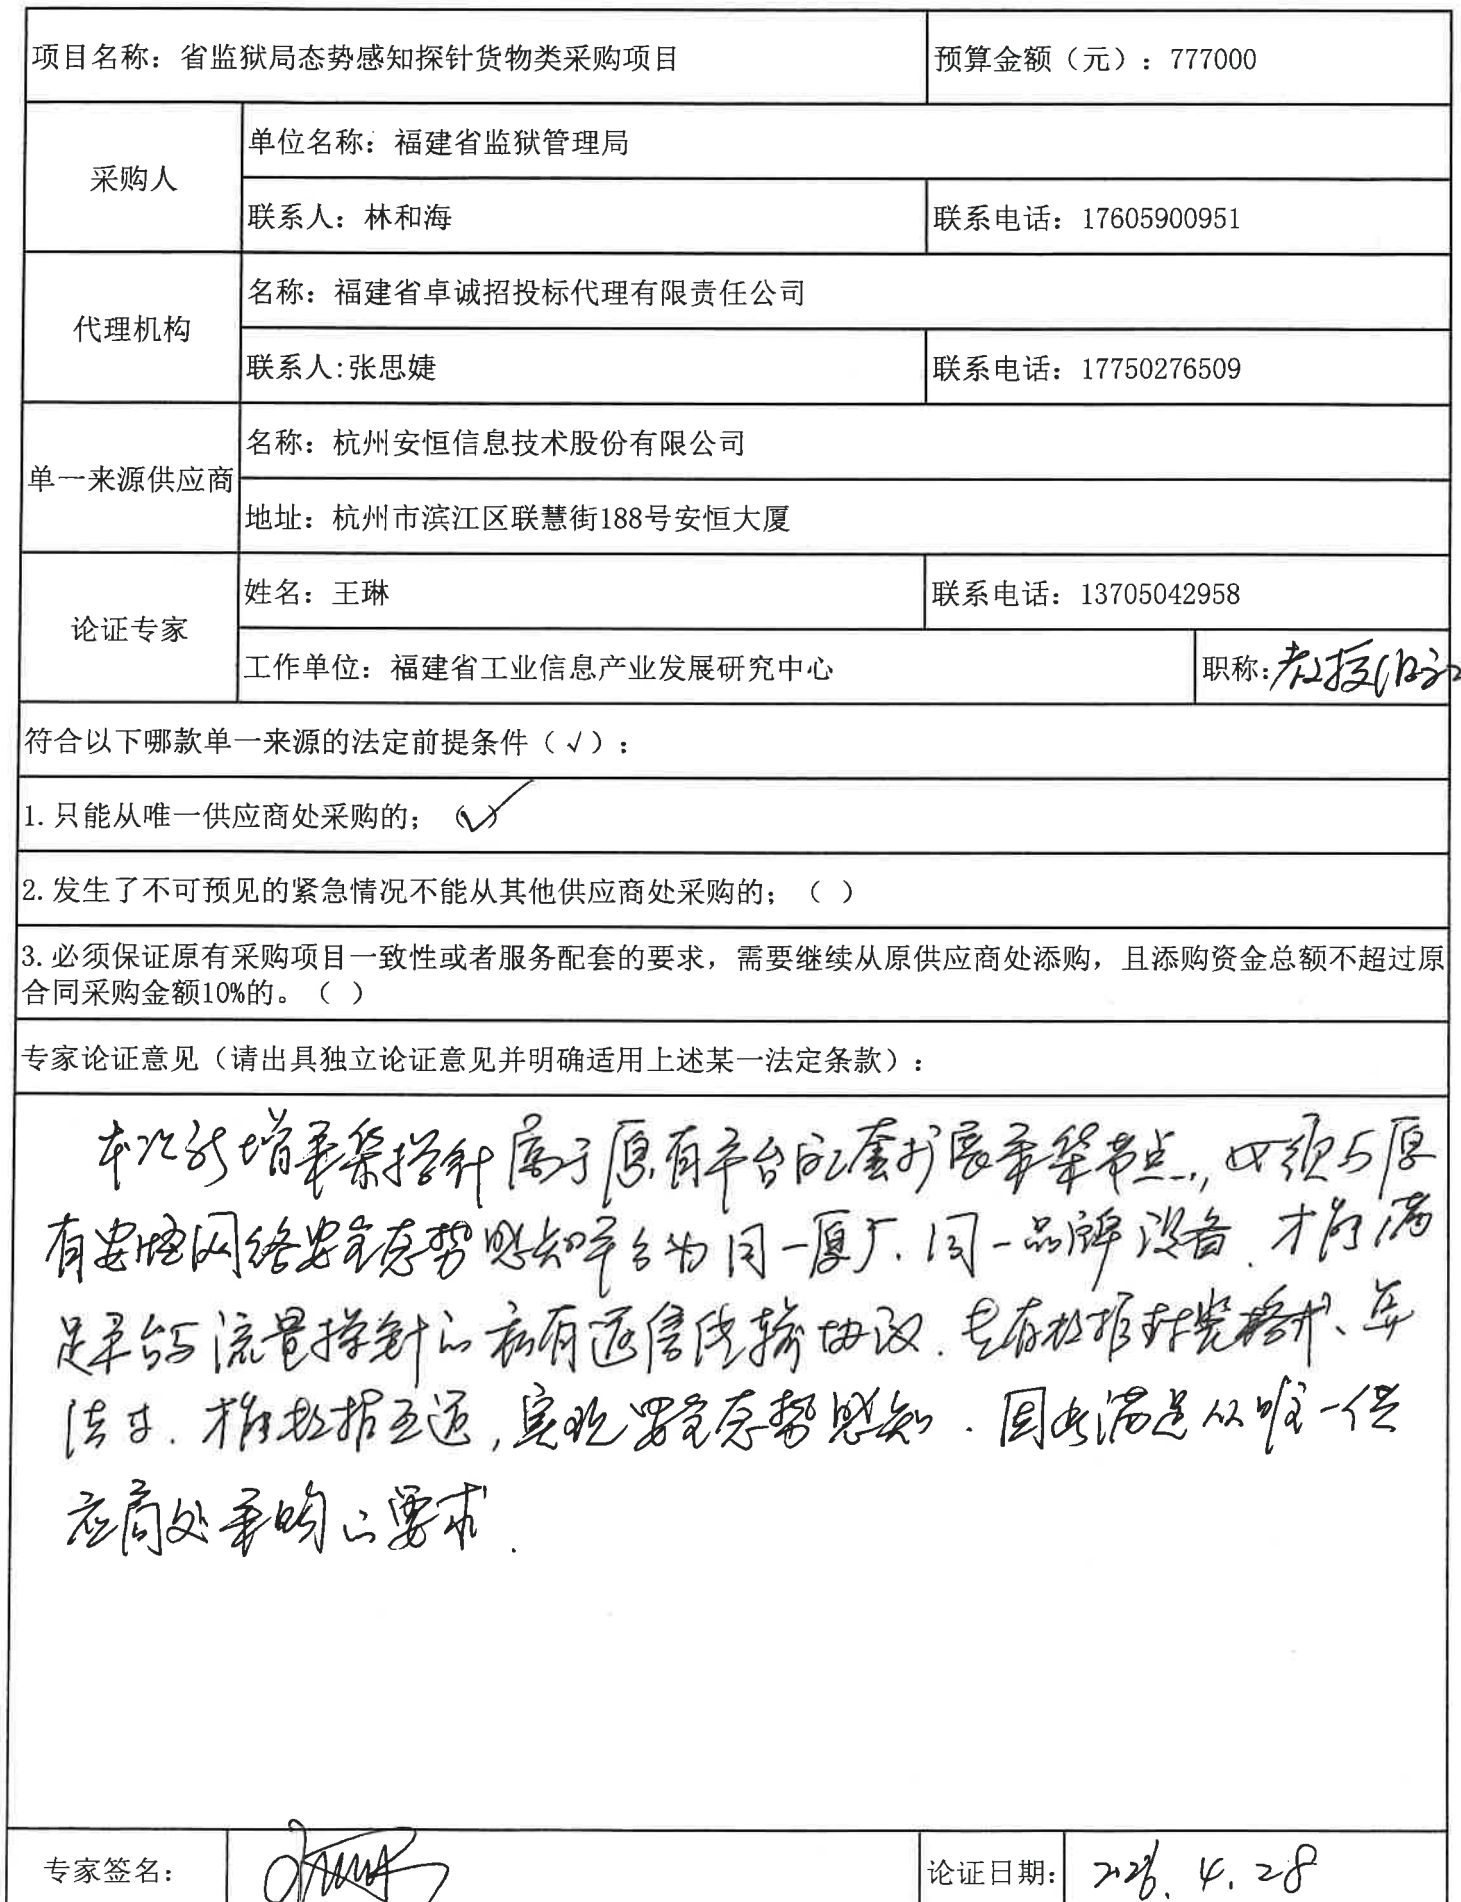 项目名称：省监狱局态势感知探针货物类采购项目
预算金额（元）：777000
采购人
单位名称：福建省监狱管理局
联系人：林和海
联系电话：17605900951
代理机构
名称：福建省卓诚招投标代理有限责任公司
联系人:张思婕
联系电话：17750276509
单一来源供应商
名称：杭州安恒信息技术股份有限公司
地址：杭州市滨江区联慧街188号安恒大厦
论证专家
姓名：王琳
联系电话：13705042958
工作单位：福建省工业信息产业发展研究中心
职称：教授
符合以下哪款单一来源的法定前提条件（√）：
1.只能从唯一供应商处采购的；（√）
2.发生了不可预见的紧急情况不能从其他供应商处采购的；（ ）
3.必须保证原有采购项目一致性或者服务配套的要求，需要继续从原供应商处添购，且添购资金总额不超过原
合同采购金额10%的。（ ）
专家论证意见（请出具独立论证意见并明确适用上述某一法定条款）：
本次新增采集探针属于原有平台配套扩展采集节点，必须与原
有安恒网络安全态势感知平台为同一原厂、同一品牌设备，才能满
足平台与流量探针的私有通信传输协议、专有数据封装格式、算
法等，才能数据互通，实现安全态势感知．因此满足从唯一供
应商处采购的要求．
专家签名：
论证日期：
2026.4.28